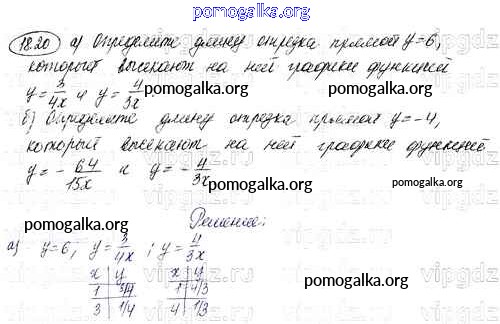 pomogalka.org
18.20 а) Определите длину отрезка прямой y=6,
который высекают на ней графики функций
y=3/4x и y=4/3x
pomogalka.org
pomogalka.org
б) Определите длину отрезка прямой y=-4,
который высекают на ней графики функций
y=-64/15x и y=-4/3x
pomogalka.org
pomogalka.org
pomogalka.org
Решение:
а) y=6, y=3/4x ; y=4/3x
x | y x | y
1 | 3/4 1 | 4/3
3 | 1/4 4 | 1/3
pomogalka.org
pomogalka.org